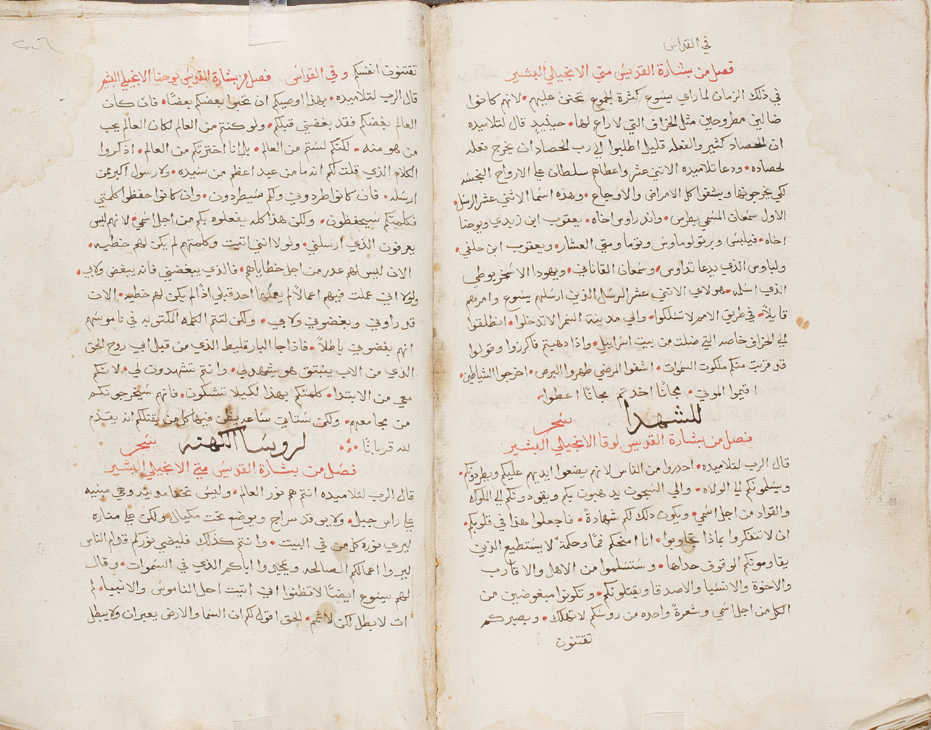 في القداس
فصل من بشارة القديس متى الانجيلي البشير
في ذلك الزمان لما راي يسوع كثرة الجموع تحنن عليهم • لانهم كانوا
ضالين مطروحين مثل الخراف التي لا راع لها • حينيد قال لتلاميده
ان الحصاد كثير والفعله قليل اطلبوا الي رب الحصاد ان يخرج فعله
لحصاده • ودعا تلاميده الاتني عشر واعطاهم سلطان علي الارواح النجسه
لكي يخرجونها ويشفوا كل الامراض والاوجاع • وهده اسما الاتني عشر الرسل •
الاول سمعان المسمي بطرس • واندراوس اخاه • يعقوب ابن زبدي ويوحنا
اخاه • فيلبس وبرتولوماوس وتوما ومتي العشار • ويعقوب ابن حلفي •
ولباوس الذي يدعا تداوس • وسمعان القاناني • ويهودا الاسخريوطي
الذي اسلمه • هولاي الاتني عشر الرسل الذين ارسلهم يسوع وامرهم
قايلاً • في طريق الامم لا تسلكوا • والي مدينة السمرا لا تدخلوا • انطلقوا
الي الخراف خاصه التي ضلت من بيت اسراييل • واذا دهبتم فاكرزوا وقولوا
قد قربت منكم ملكوت السموات • اشفوا المرضي طهروا البرص • اخرجوا الشياطين •
اقيموا الموتي • مجانًا اخدتم مجانًا اعطوا •
للشهدا سحر
فصل من بشارة القديس لوقا الانجيلي البشير
قال الرب لتلاميده • احدروا من الناس لانهم يضعوا ايديهم عليكم ويطردوكم •
ويسلمونكم الي الولاه • والي السجون يدهبون بكم ويقودونكم الي الملوك
والقواد من اجل اسمي • ويكون دلك لكم شهادةً • فاجعلوا هذا في قلوبكم •
ان لا تتفكروا بماذا تجاوبوا • انا امنحكم فمًا وحكمة لا يستطيع الذين
يقاوموكم الوقوف حداها • وستسلموا من الاهل والاقارب
والاخوة والانسبا والاصدقا ويقتلونكم • وتكونوا مبغوضين من
الكل من اجل اسمي • وشعرةً واحده من روسكم لا تهلك • وبصبركم
تقتنون
تقتنون انفسكم وفي القداس فصل من بشارة القديس يوحنا الانجيلي البشير
قال الرب لتلاميده • بهذا اوصيكم ان تحبوا بعضكم بعضًا • فان كان
العالم يبغضكم فقد بغضني قبلكم • ولو كنتم من العالم لكان العالم يحب
من هو منه • لكنكم لستم من العالم • بل انا اخترتكم من العالم • ادكروا
الكلام الذي قلت لكم انه ما من عبد اعظم من سيده • ولا رسول اكبر ممن
ارسله • فان كانوا طردوني وكم سيطردون • وان كانوا حفظوا كلمتي
فكلمتكم سيحفظون • ولكن هذا كله يفعلوه بكم من اجل اسمي • لانهم ليس
يعرفون الذي ارسلني • ولولا انني اتيت وكلمتهم لم يكن لهم خطيه •
الان ليس لهم عدر من اجل خطاياهم • فالذي يبغضني فانه يبغض ولابي •
ولولا اني عملت فيهم اعمالاً لم يعملها احد قبلي ادًا لم يكن لهم خطيه • الان
قد راوني وبغضوني ولابي • ولكن لتتم الكلمه المكتوبه في ناموسهم
انهم بغضوني باطلاً • فاذا جا البارقليط الذي من قبل ابي روح الحق
الذي من الاب ينبتق هو يشهد لي • وانتم تشهدون لي • لانكم
معي من الابتدا • كلمتكم بهذا لكيلا تشكون • فانهم سيخرجونكم
من مجامعهم • ولكن ستاتي ساعه يظن فيها كل من يقتلكم انه يقدم
لله قربانًا • لروسا الكهنه سحر
فصل من بشارة القديس متي الانجيلي البشير
قال الرب لتلاميده انتم هم نور العالم • وليس تخفا مدينه وهي مبنيه
علي راس جبل • ولا يوقد سراج ويوضع تحت مكيال • ولكن علي مناره
ليري نوره كل من في البيت • وانتم كذلك فليضي نوركم قدام الناس
ليروا اعمالكم الصالحه ويمجدوا اباكم الذي في السموات • وقال
لهم يسوع ايضًا لا تظنوا اني اتيت احل الناموس والانبيا • لم
ات لابطل لكن لاتمم • الحق اقول لكم ان السما والارض يعبران ولا يبطل